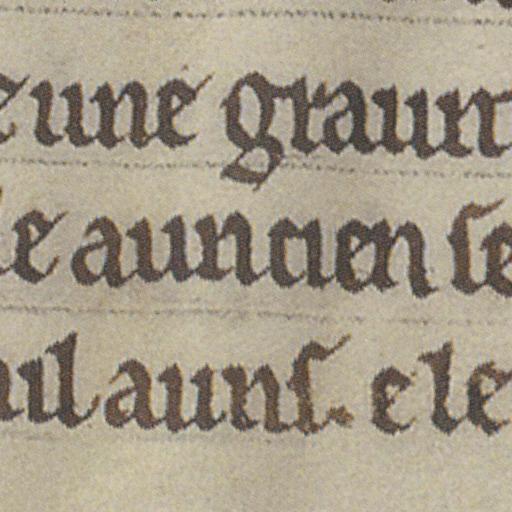 une graunt
le auncien se
il auns. e le